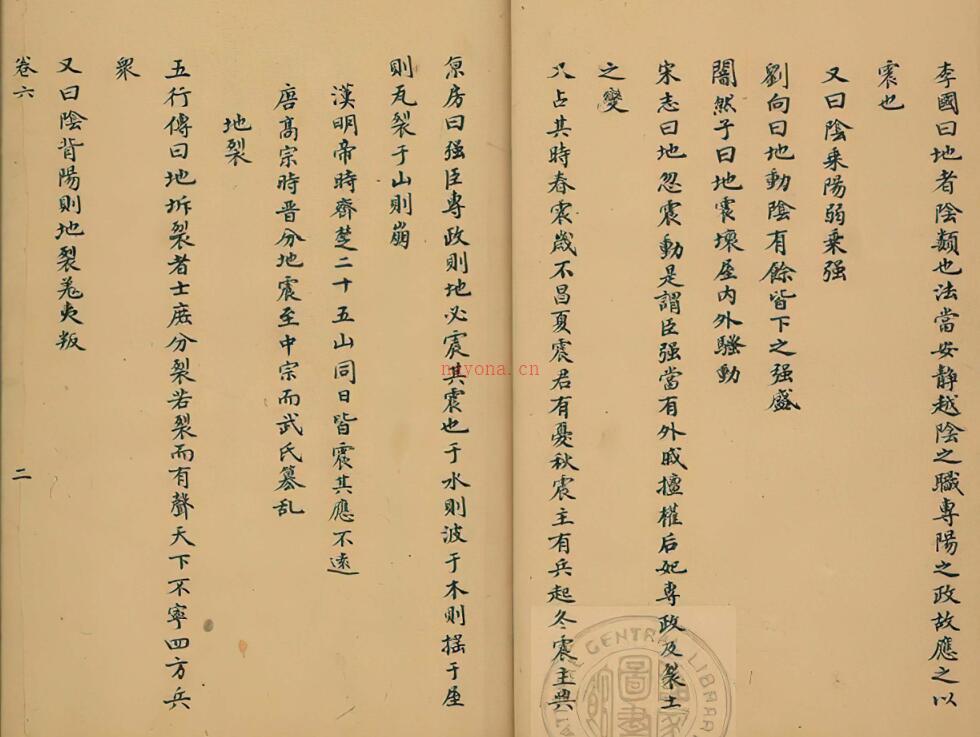 李國曰地者陰類也法當安靜越陰之職專陽之政故應之以
震也
又曰陰乘陽弱乘强
劉向曰地動陰有餘皆下之强盛
闇然子曰地震壞屋内外騷動
宋志曰地忽震動是謂臣强當有外戚擅權后妃専政及裂土
之變
又占其時春震歲不昌夏震君有憂秋震主有兵起冬震主與
京房曰强臣専政則地必震其震也于水則波于木則摇于屋
則瓦裂于山則崩
漢明帝時齊楚二十五山同日皆震其應不遠
唐高宗時晋分地震至中宗而武氏篡乱
地裂
五行傳曰地坼裂者士庶分裂若裂而有聲天下不寧四方兵
衆
又曰陰背陽則地裂羌夷叛
卷六
二
nayona.cn
CENTRAL LIBRAR
圖